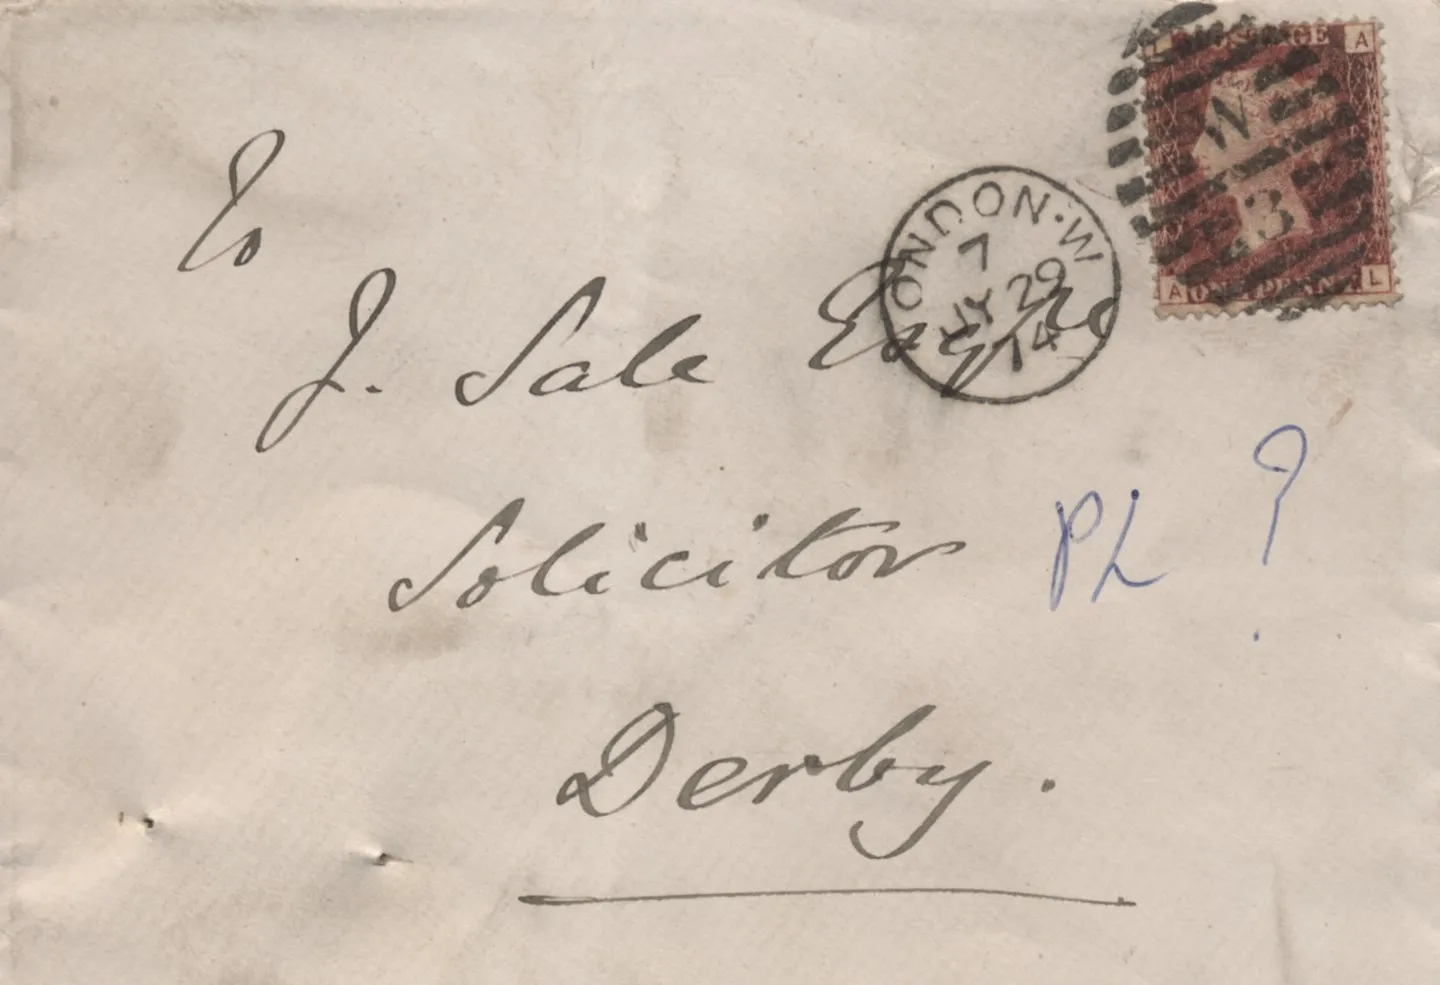 To
J. Sale Esqre
Solicitor
Derby.
PL ?
LONDON·W
7
JY 29
74
W
3
POSTAGE
A
A ONE PENNY L